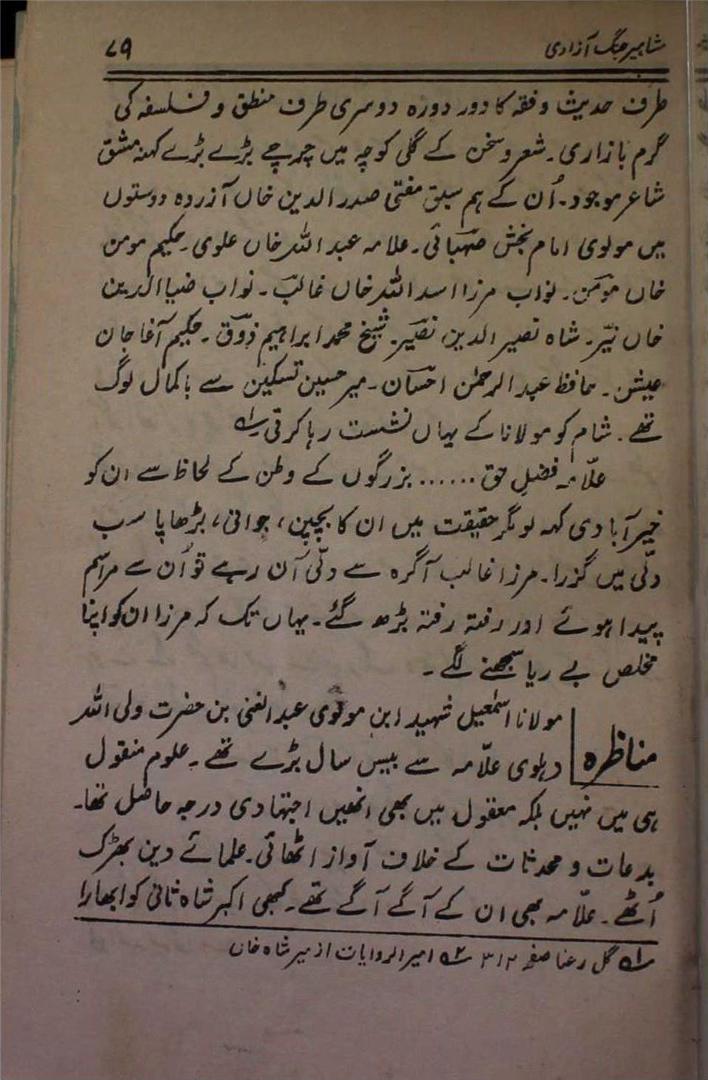 مشاہیر جنگ آزادی ۷۹
طرف حدیث و فقہ کا دور دورہ دوسری طرف منطق و فلسفہ کی
گرم بازاری۔ شعر و سخن کے گلی کوچہ میں چرچے بڑے بڑے کہنہ مشق
شاعر موجود۔ اُن کے ہم سبق مفتی صدر الدین خاں آزردہ دوستوں
میں مولوی امام بخش صہبائی۔ علامہ عبد اللہ خاں علوی۔ حکیم مومن
خاں مومن۔ نواب مرزا اسد اللہ خاں غالب۔ نواب ضیاالدین
خاں نیّر۔ شاہ نصیر الدین نصیر۔ شیخ محمد ابراہیم ذوق۔ حکیم آغا جان
عیش۔ حافظ عبد الرحمٰن احسان۔ میر حسین تسکین سے باکمال لوگ
تھے۔ شام کو مولانا کے یہاں نشست رہا کرتی ۱؎
علّامہ فضلِ حق ...... بزرگوں کے وطن کے لحاظ سے ان کو
خیرآبادی کہہ لو مگر حقیقت میں ان کا بچپن، جوانی، بڑھاپا سب
دلّی میں گزرا۔ مرزا غالب آگرہ سے دلّی آن رہے تو اُن سے مراسم
پیدا ہوئے اور رفتہ رفتہ بڑھ گئے۔ یہاں تک کہ مرزا ان کو اپنا
مخلص بے ریا سمجھنے لگے۔
مناظرہ
مولانا اسمٰعیل شہید ابن مولوی عبد الغنی بن حضرت ولی اللہ
دہلوی علّامہ سے بیس سال بڑے تھے۔ علوم منقول
ہی میں نہیں بلکہ معقول میں بھی انھیں اجتہادی درجہ حاصل تھا۔
بدعات و محدثات کے خلاف آواز اٹھائی۔ علمائے دین بھڑک
اُٹھے۔ علّامہ بھی ان کے آگے آگے تھے۔ کبھی اکبر شاہ ثانی کو ابھارا
۱؎ گل رعنا صفحہ ۳۱۲ ۲؎ امیر الروایات از میر شاہ خاں